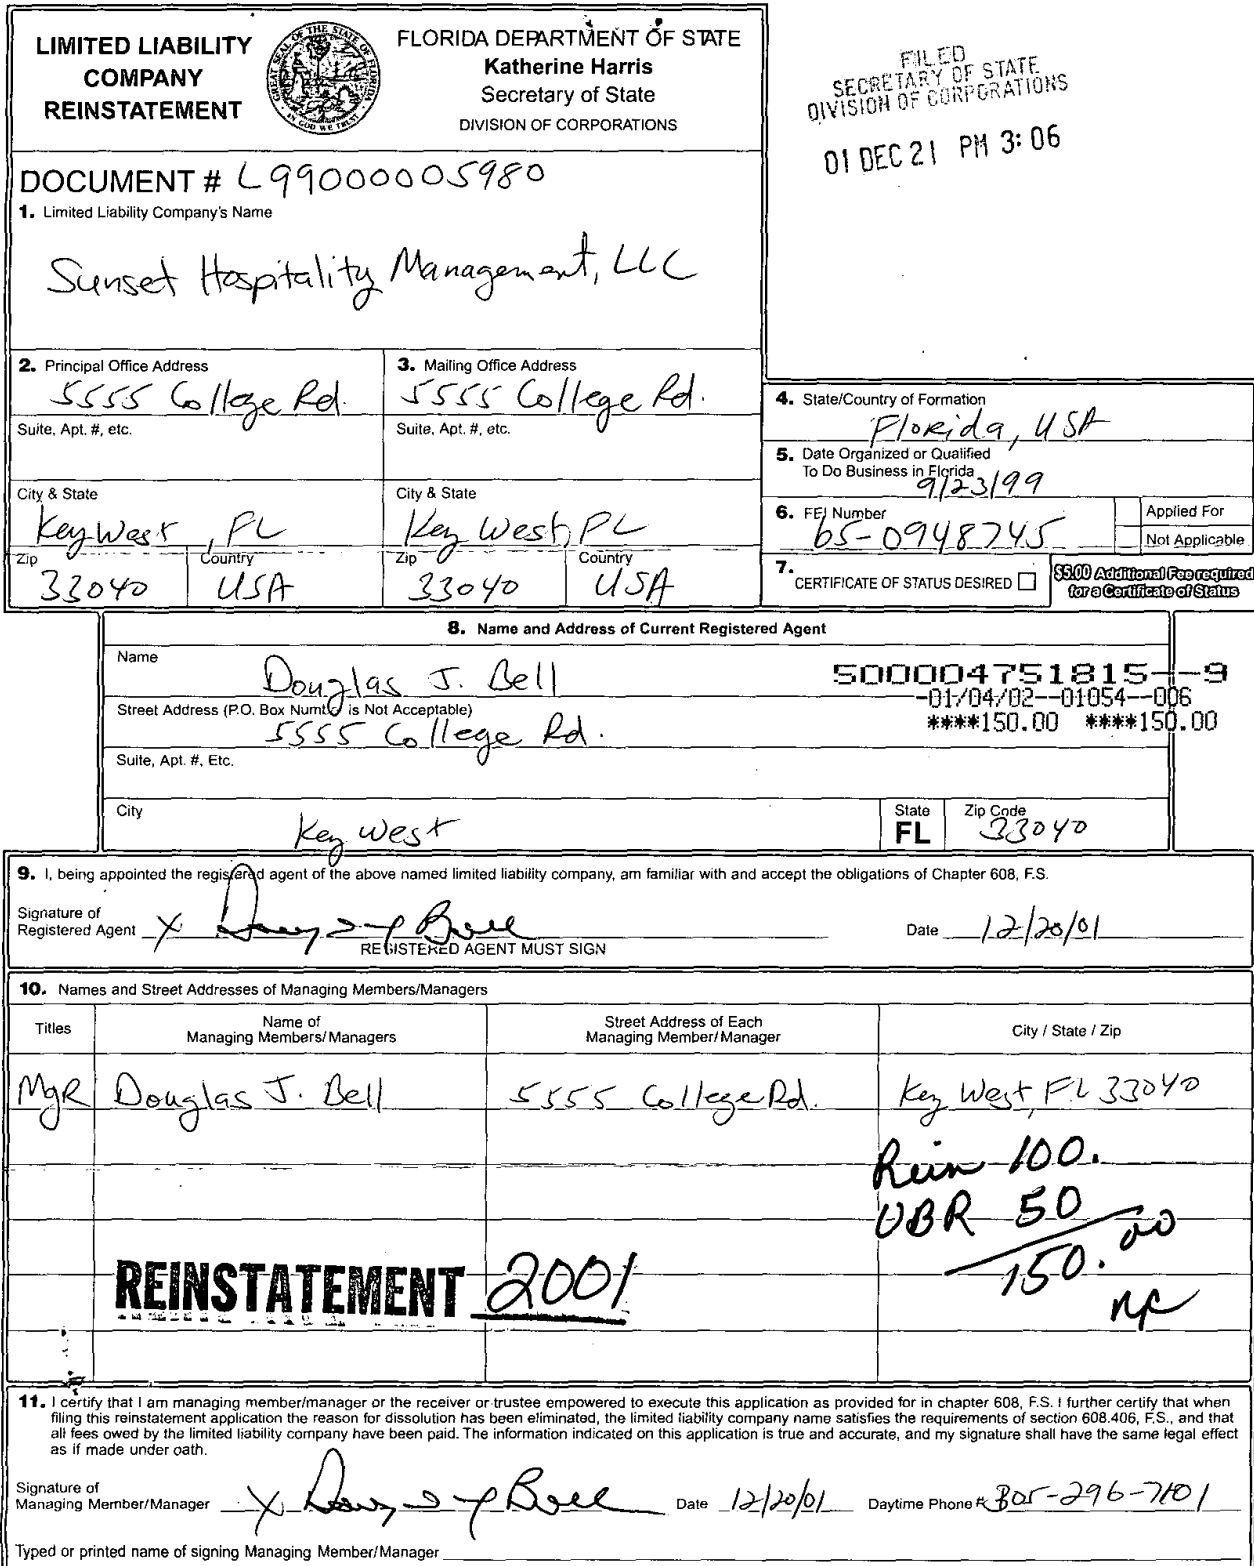 LIMITED LIABILITY
COMPANY
REINSTATEMENT
GREAT SEAL OF THE STATE OF FLORIDA
IN GOD WE TRUST
FLORIDA DEPARTMENT OF STATE
Katherine Harris
Secretary of State
DIVISION OF CORPORATIONS
FILED
SECRETARY OF STATE
DIVISION OF CORPORATIONS
01 DEC 21 PM 3:06
DOCUMENT # L99000005980
1. Limited Liability Company's Name
Sunset Hospitality Management, LLC
2. Principal Office Address
5555 College Rd.
3. Mailing Office Address
5555 College Rd.
Suite, Apt. #, etc.
Suite, Apt. #, etc.
City & State
Key West, FL
City & State
Key West, FL
Zip
33040
Country
USA
Zip
33040
Country
USA
4. State/Country of Formation
Florida, USA
5. Date Organized or Qualified
To Do Business in Florida
9/23/99
6. FEI Number
65-0948745
Applied For
Not Applicable
7. CERTIFICATE OF STATUS DESIRED
$5.00 Additional Fee required
for a Certificate of Status
8. Name and Address of Current Registered Agent
Name
Douglas J. Bell
500004751815--9
-01/04/02--01054--006
****150.00 ****150.00
Street Address (P.O. Box Number is Not Acceptable)
5555 College Rd.
Suite, Apt. #, Etc.
City
Key West
State
FL
Zip Code
33040
9. I, being appointed the registered agent of the above named limited liability company, am familiar with and accept the obligations of Chapter 608, F.S.
Signature of
Registered Agent X
REGISTERED AGENT MUST SIGN
Date 12/20/01
10. Names and Street Addresses of Managing Members/Managers
Titles
Name of
Managing Members/Managers
Street Address of Each
Managing Member/Manager
City / State / Zip
MgR Douglas J. Bell 5555 College Rd. Key West, FL 33040
Rein 100.
UBR 50
150.00
REINSTATEMENT 2001
11. I certify that I am managing member/manager or the receiver or trustee empowered to execute this application as provided for in chapter 608, F.S. I further certify that when
filing this reinstatement application the reason for dissolution has been eliminated, the limited liability company name satisfies the requirements of section 608.406, F.S., and that
all fees owed by the limited liability company have been paid. The information indicated on this application is true and accurate, and my signature shall have the same legal effect
as if made under oath.
Signature of
Managing Member/Manager X
Date 12/20/01
Daytime Phone # 305-296-7101
Typed or printed name of signing Managing Member/Manager